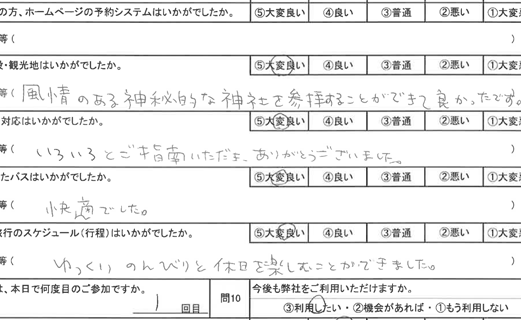 の方、ホームページの予約システムはいかがでしたか。 ⑤大変良い ④良い ③普通 ②悪い ①大変
等(
・観光地はいかがでしたか。 ⑤大変良い ④良い ③普通 ②悪い ①大変
等( 風情のある神秘的な神社を参拝することができて良かったです。
対応はいかがでしたか。 ⑤大変良い ④良い ③普通 ②悪い ①大変
等( いろいろとご指南いただき、ありがとうございました。 )
たバスはいかがでしたか。 ⑤大変良い ④良い ③普通 ②悪い ①大変
等( 快適でした。 )
旅行のスケジュール(行程)はいかがでしたか。 ⑤大変良い ④良い ③普通 ②悪い ①大変
等( ゆっくりのんびりと休日を楽しむことができました。 )
は、本日で何度目のご参加ですか。 1 回目 問10 今後も弊社をご利用いただけますか。
③利用したい・②機会があれば・①もう利用しない